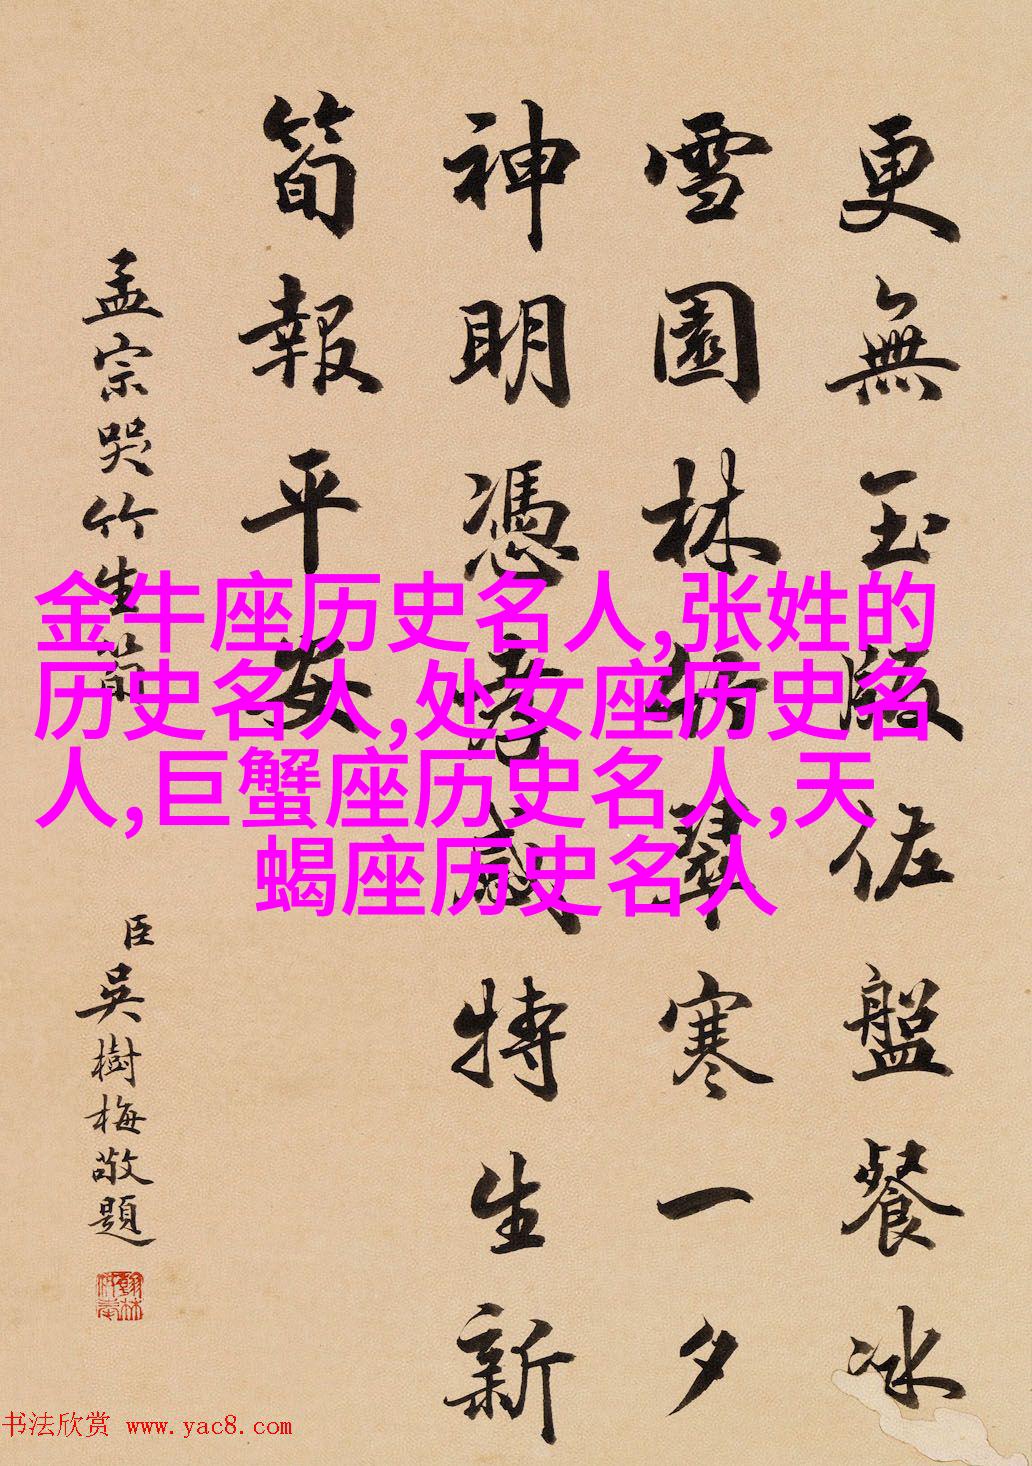 更無玉版佐盤餐冰
雪園林節翠寒一夕
神明憑孝感特生新
筍報平安
孟宗哭竹生筍
臣吳樹梅敬題
金牛座历史名人,张姓的
历史名人,处女座历史名
人,巨蟹座历史名人,天
蝎座历史名人
书法欣赏 www.yac8.com